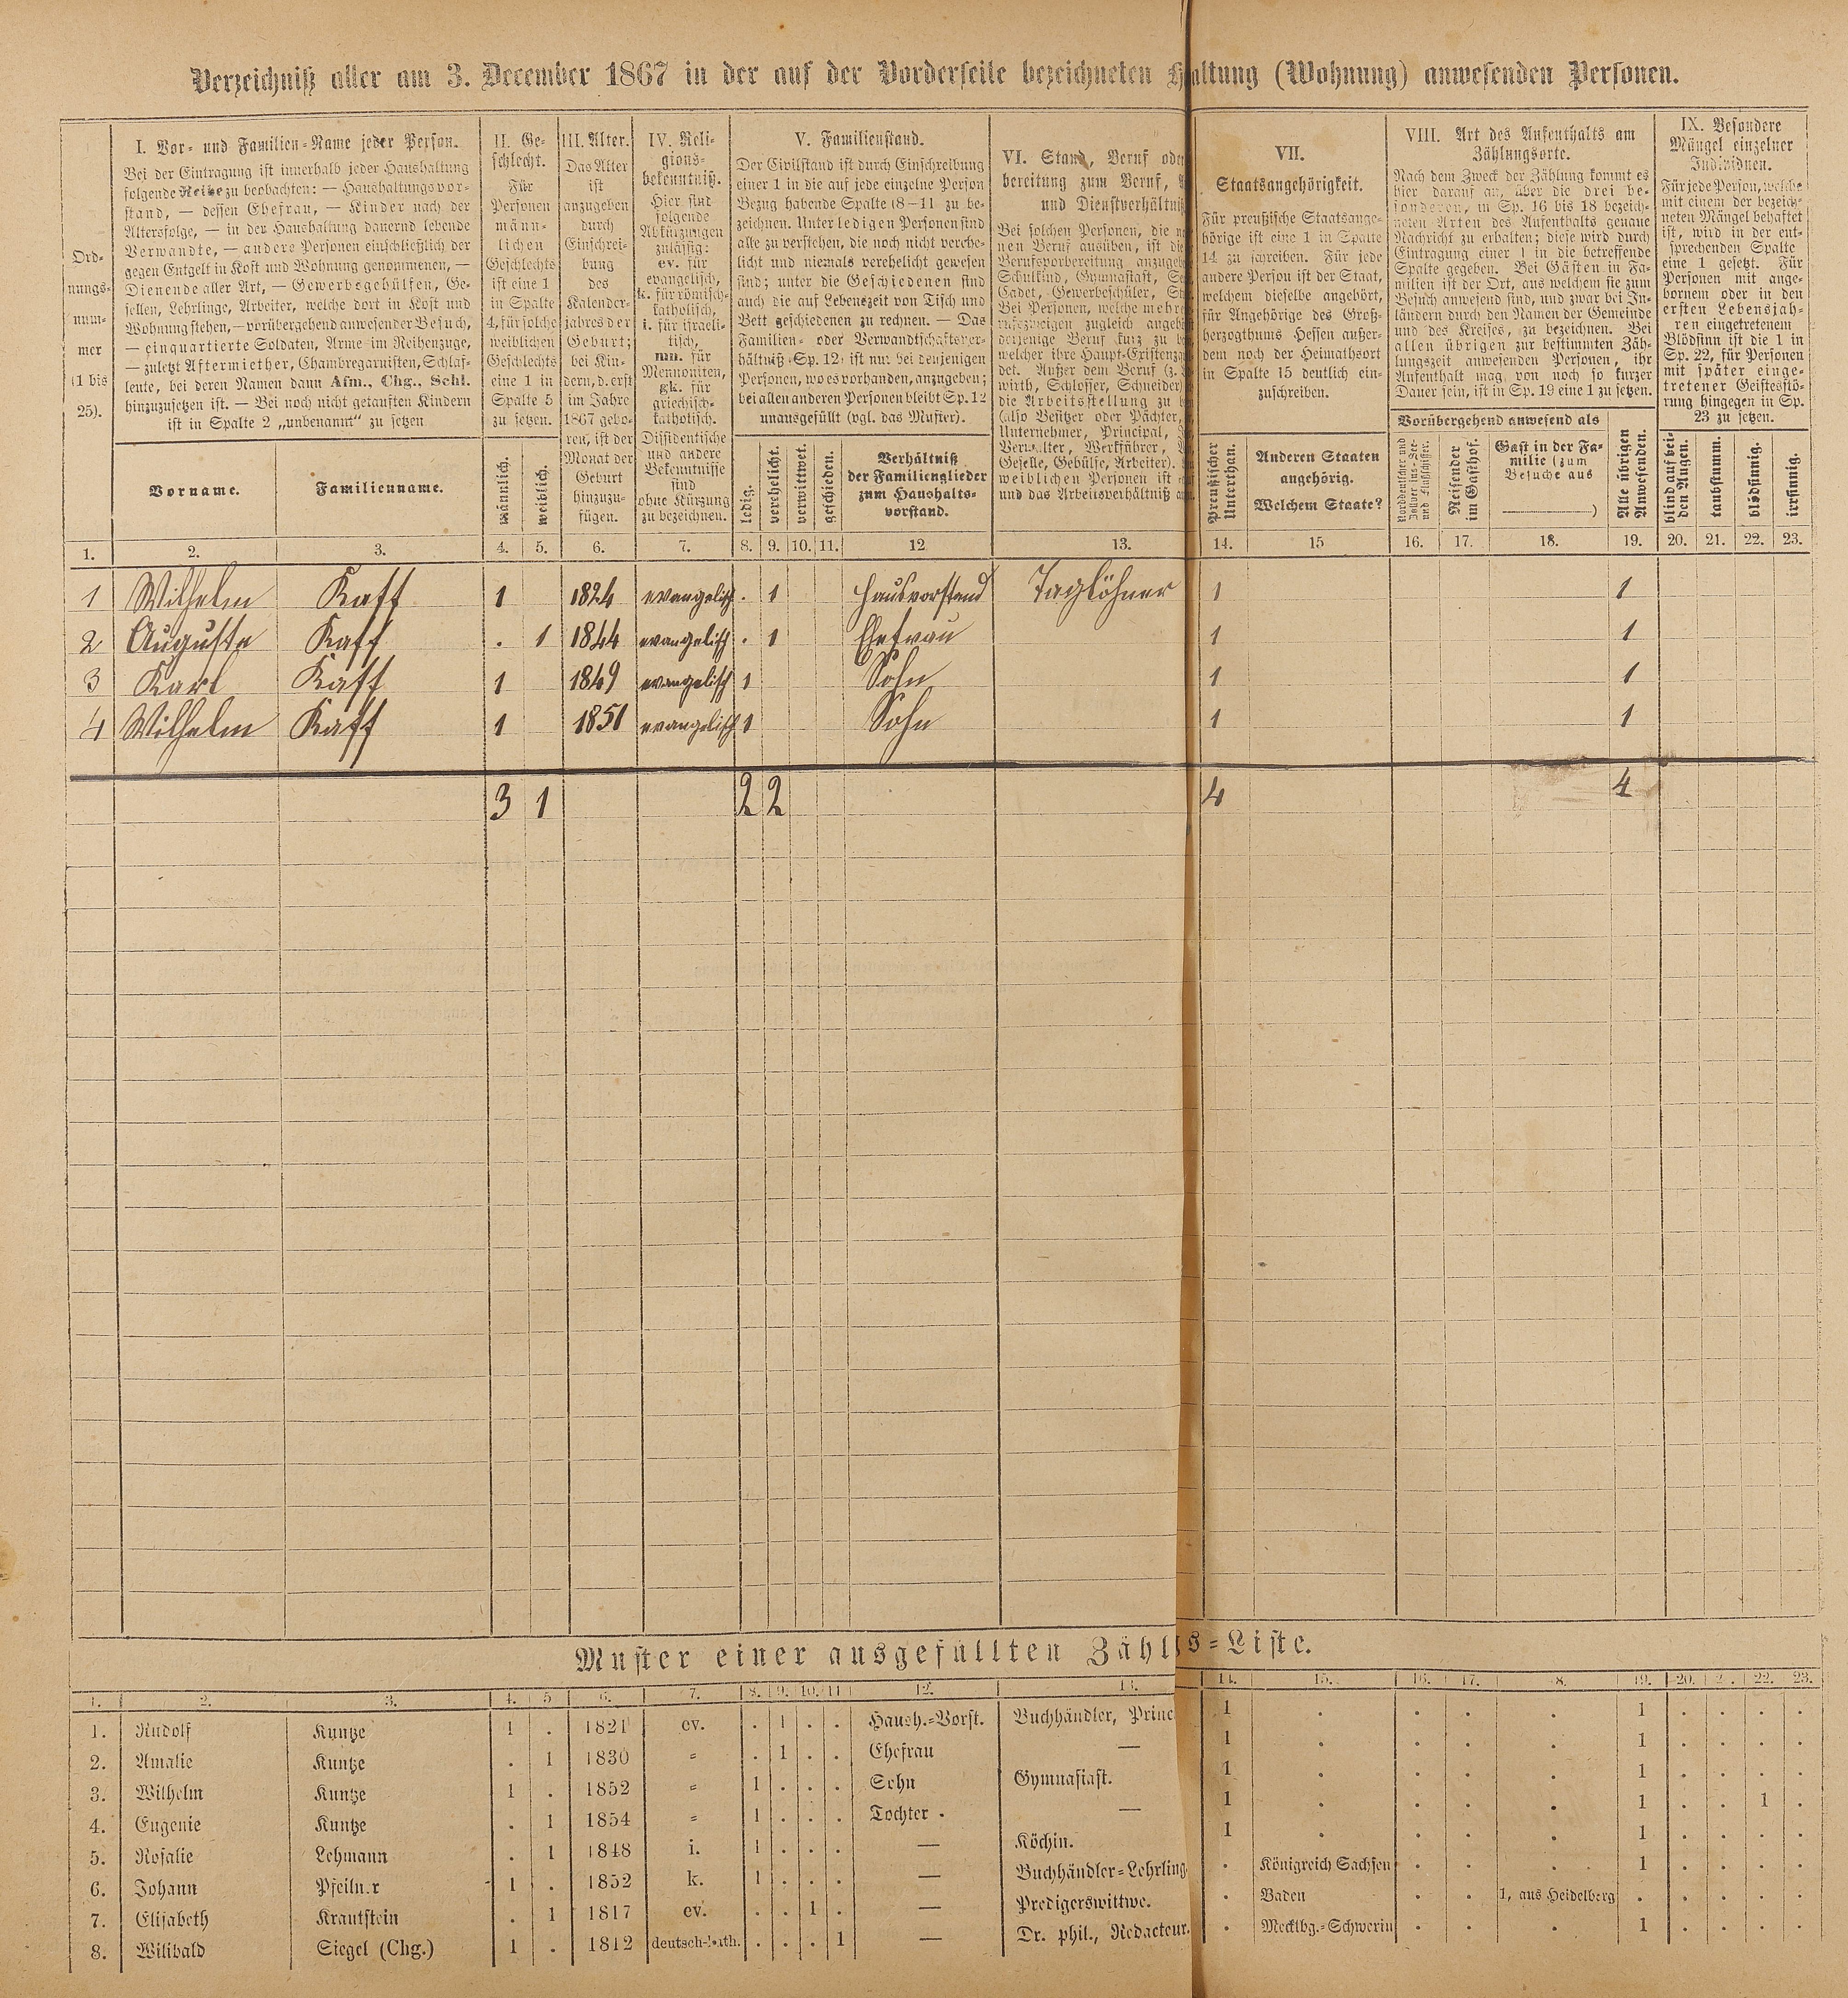 Verzeichniß aller am 3. December 1867 in der auf der Vorderseite bezeichneten Haltung (Wohnung) anwesenden Personen.
Ord-
nungs-
num-
mer
(1 bis
25).
I. Vor- und Familien-Name jeder Person.
Bei der Eintragung ist innerhalb jeder Haushaltung
folgende Reihe zu beobachten: — Haushaltungsvor-
stand, — dessen Ehefrau, — Kinder nach der
Altersfolge, — in der Haushaltung dauernd lebende
Verwandte, — andere Personen einschließlich der
gegen Entgelt in Kost und Wohnung genommenen, —
Dienende aller Art, — Gewerbsgehülfen, Ge-
sellen, Lehrlinge, Arbeiter, welche dort in Kost und
Wohnung stehen, — vorübergehend anwesender Besuch,
— einquartierte Soldaten, Arme im Reihenzuge,
— zuletzt Aftermiether, Chambregarnisten, Schlaf-
leute, bei deren Namen dann Afm., Chg., Schl.
hinzuzusetzen ist. — Bei noch nicht getauften Kindern
ist in Spalte 2 „unbenannt“ zu setzen
Vorname.
Familienname.
II. Ge-
schlecht.
Für
Personen
männ-
lichen
Geschlechts
ist eine 1
in Spalte
4, für solche
weiblichen
Geschlechts
eine 1 in
Spalte 5
zu setzen.
männlich.
weiblich.
III. Alter.
Das Alter
ist
anzugeben
durch
Einschrei-
bung
des
Kalender-
jahres der
Geburt;
bei Kin-
dern, d. erst
im Jahre
1867 gebo-
ren, ist der
Monat der
Geburt
hinzuzu-
fügen.
IV. Reli-
gions-
bekenntniß.
Hier sind
folgende
Abkürzungen
zulässig:
ev. für
evangelisch,
k. für römisch-
katholisch,
i. für israeli-
tisch,
mn. für
Mennoniten,
gk. für
griechisch-
katholisch.
Dissidentische
und andere
Bekenntnisse
sind
ohne Kürzung
zu bezeichnen.
V. Familienstand.
Der Civilstand ist durch Einschreibung
einer 1 in die auf jede einzelne Person
Bezug habende Spalte (8—11 zu be-
zeichnen. Unter ledigen Personen sind
alle zu verstehen, die noch nicht verehe-
licht und niemals verehelicht gewesen
sind; unter die Geschiedenen sind
auch die auf Lebenszeit von Tisch und
Bett geschiedenen zu rechnen. — Das
Familien- oder Verwandtschaftsver-
hältniß (Sp. 12) ist nur bei denjenigen
Personen, wo es vorhanden, anzugeben;
bei allen anderen Personen bleibt Sp. 12
unausgefüllt (vgl. das Muster).
ledig.
verehelicht.
verwittwet.
geschieden.
Verhältniß
der Familienglieder
zum Haushalts-
vorstand.
VI. Stand, Beruf ode
bereitung zum Beruf,
und Dienstverhältniß
Bei solchen Personen, die n
nen Beruf ausüben, ist die
Berufsvorbereitung anzugeb
Schulkind, Gymnasiast, Se
Cadet, Gewerbeschüler, St
Bei Personen, welche mehre
rufszweigen zugleich angehö
derjenige Beruf kurz zu b
welcher ihre Haupt-Existenzq
det. Außer dem Beruf (z.
wirth, Schlosser, Schneider
die Arbeitsstellung zu b
(also Besitzer oder Pächter,
Unternehmer, Principal,
Verwalter, Werkführer,
Geselle, Gehülfe, Arbeiter).
weiblichen Personen ist
und das Arbeitsverhältniß
VII.
Staatsangehörigkeit.
Für preußische Staatsange-
hörige ist eine 1 in Spalte
14 zu schreiben. Für jede
andere Person ist der Staat,
welchem dieselbe angehört,
für Angehörige des Groß-
herzogthums Hessen außer-
dem noch der Heimathsort
in Spalte 15 deutlich ein-
zuschreiben.
Preußischer
Unterthan.
Anderen Staaten
angehörig.
Welchem Staate?
VIII. Art des Aufenthalts am
Zählungsorte.
Nach dem Zweck der Zählung kommt es
hier darauf an, über die drei be-
sonderen, in Sp. 16 bis 18 bezeich-
neten Arten des Aufenthalts genaue
Nachricht zu erhalten; diese wird durch
Eintragung einer 1 in die betreffende
Spalte gegeben. Bei Gästen in Fa-
milien ist der Ort, aus welchem sie zum
Besuch anwesend sind, und zwar bei In-
ländern durch den Namen der Gemeinde
und des Kreises, zu bezeichnen. Bei
allen übrigen zur bestimmten Zäh-
lungszeit anwesenden Personen, ihr
Aufenthalt mag von noch so kurzer
Dauer sein, ist in Sp. 19 eine 1 zu setzen.
Vorübergehend anwesend als
Reisender
im Gasthof.
Gast in der Fa-
milie (zum
Besuche aus
)
Alle übrigen
Anwesenden.
IX. Besondere
Mängel einzelner
Individuen.
Für jede Person, welche
mit einem der bezeich-
neten Mängel behaftet
ist, wird in der ent-
sprechenden Spalte
eine 1 gesetzt. Für
Personen mit ange-
bornem oder in den
ersten Lebensjah-
ren eingetretenem
Blödsinn ist die 1 in
Sp. 22, für Personen
mit später einge-
tretener Geistesstö-
rung hingegen in Sp.
23 zu setzen.
blind auf bei-
den Augen.
taubstumm.
blödsinnig.
irrsinnig.
1. 2. 3. 4. 5. 6. 7. 8. 9. 10. 11. 12 13. 14. 15 16. 17. 18. 19. 20. 21. 22. 23.
1 Wilhelm Kaff 1 1824 evangelisch . 1 Hausvorstand Taglöhner 1 1
2 Auguste Kaff . 1 1844 evangelisch . 1 Ehefrau 1 1
3 Karl Kaff 1 1849 evangelisch 1 Sohn 1 1
4 Wilhelm Kaff 1 1851 evangelisch 1 Sohn 1 1
3 1 2 2 4 4
Muster einer ausgefüllten Zähl s-Liste.
1. 2. 3. 4. 5 6. 7. 8. 9. 10. 11 12. 13. 14. 15. 16. 17. 8. 19. 20. 2. 22. 23.
1. Rudolf Kuntze 1 . 1821 ev. . 1 . . Haush.-Vorst. Buchhändler, Princ 1 . . . . 1 . . . .
2. Amalie Kuntze . 1 1830 „ . 1 . . Ehefrau — 1 . . . . 1 . . . .
3. Wilhelm Kuntze 1 . 1852 „ 1 . . . Sohn Gymnasiast. 1 . . . . 1 . . . .
4. Eugenie Kuntze . 1 1854 „ 1 . . . Tochter . — 1 . . . . 1 . . 1 .
5. Rosalie Lehmann . 1 1848 i. 1 . . . — Köchin. 1 . . . . 1 . . . .
6. Johann Pfeiln.r 1 . 1852 k. 1 . . . — Buchhändler-Lehrling . Königreich Sachsen . . . 1 . . . .
7. Elisabeth Krautstein . 1 1817 ev. . . 1 . — Predigerswittwe. . Baden . . 1, aus Heidelberg . . . . .
8. Wilibald Siegel (Chg.) 1 . 1812 deutsch-kath. . . . 1 — Dr. phil., Redacteur. . Mecklbg.-Schwerin . . . 1 . . . .